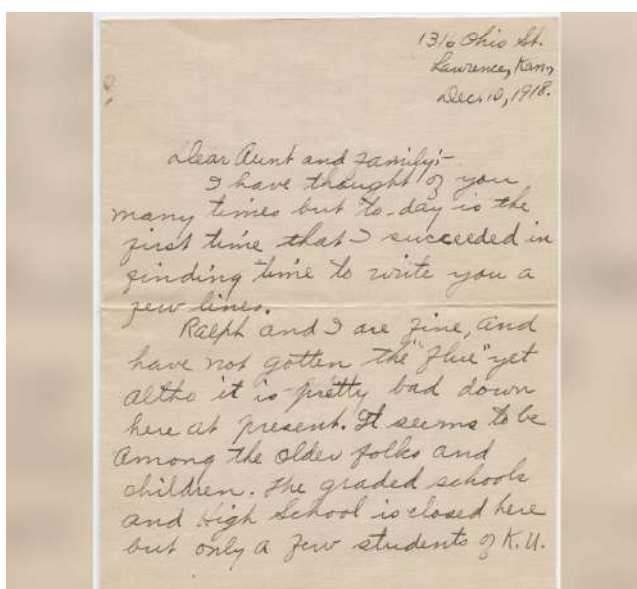 1316 Ohio St.
Lawrence, Kans,
Dec. 10, 1918.
Dear Aunt and Family:-
I have thought of you
many times but to-day is the
first time that I succeeded in
finding time to write you a
few lines.
Ralph and I are fine, and
have not gotten the "flue" yet
altho it is pretty bad down
here at present. It seems to be
among the older folks and
children. The graded schools
and High School is closed here
but only a few students of K.U.